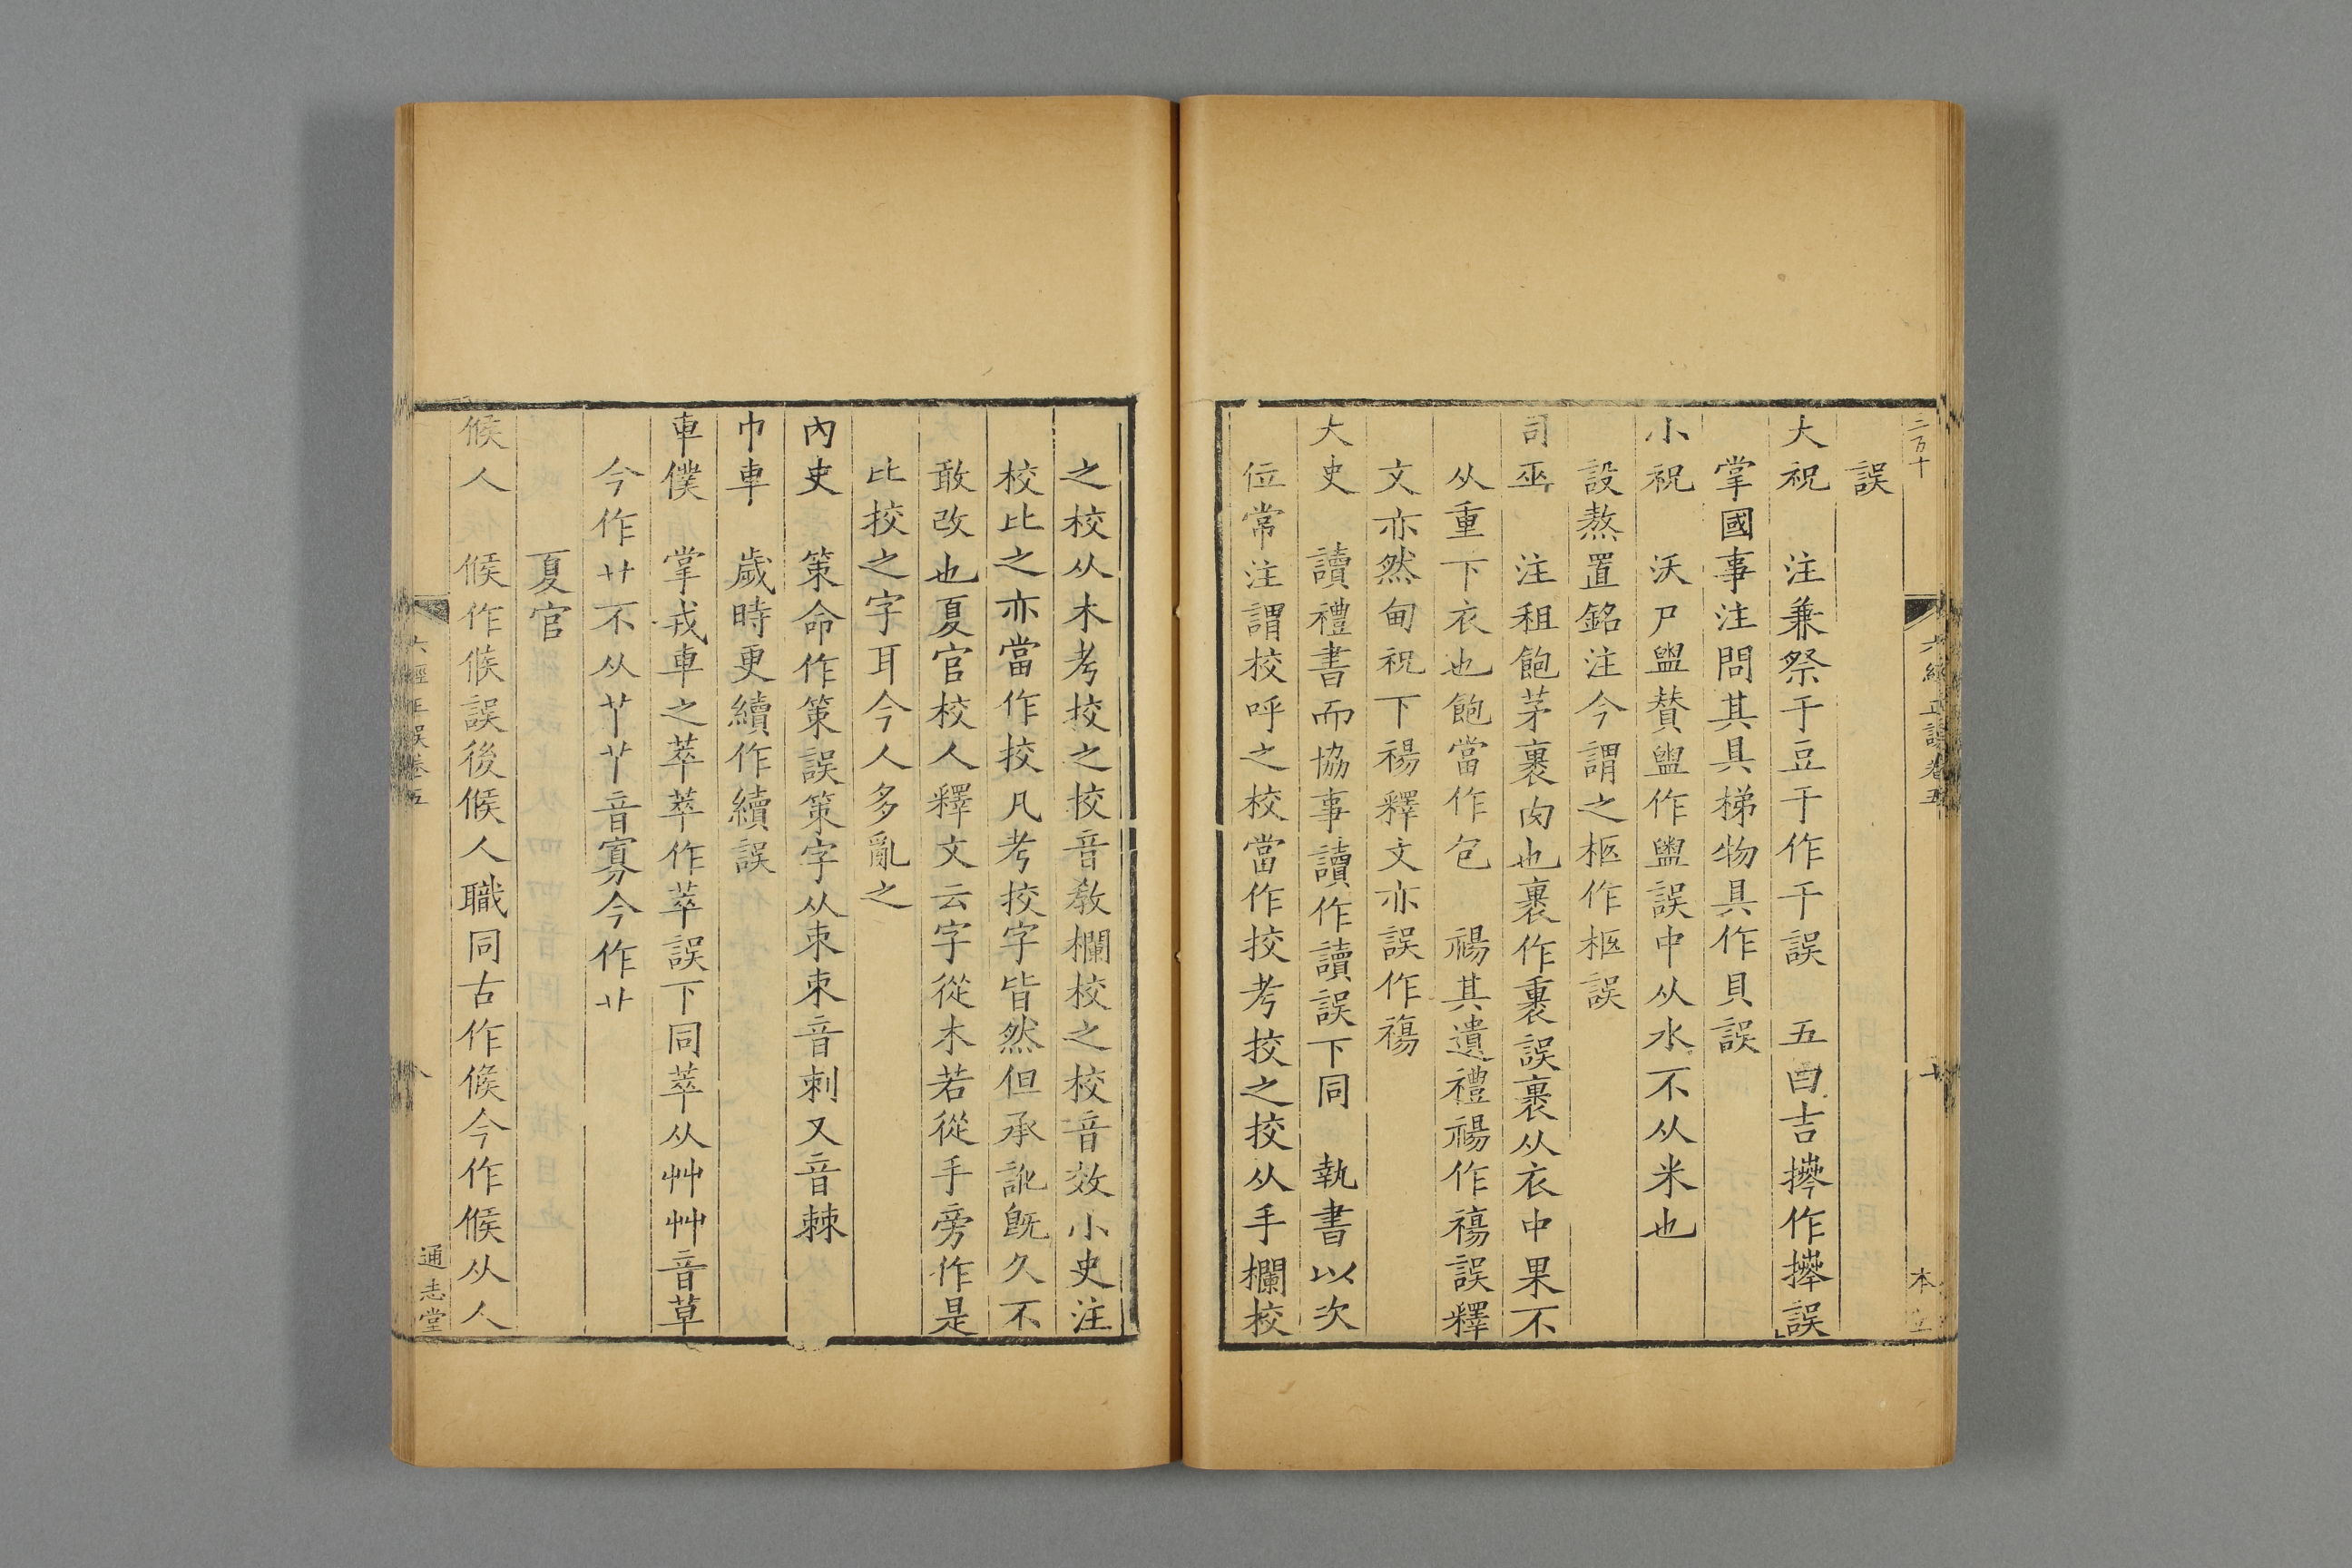 二百十
六經正誤卷五
本立
誤
大祝　注兼祭于豆于作千誤　五曰吉㩓作㩓誤
掌國事注問其具梯物具作貝誤
小祝　沃尸盥賛盥作盥誤中从水不从米也
設熬置銘注今謂之柩作柩誤
司巫　注租飽茅裹肉也裹作裏誤裹从衣中果不
从重下衣也飽當作包　禓其遺禮禓作禓誤釋
文亦然甸祝下禓釋文亦誤作禓
大史　讀禮書而協事讀作讀誤下同　執書以次
位常注謂校呼之校當作挍考挍之挍从手欄校
之校从木考挍之挍音教欄校之校音效小史注
校比之亦當作挍凡考挍字皆然但承訛旣久不
敢改也夏官校人釋文云字從木若從手旁作是
比挍之字耳今人多亂之
內史　策命作策誤策字从朿朿音刺又音棘
巾車　歲時更續作續誤
車僕　掌戎車之萃萃作萃誤下同萃从艸艸音草
今作卄不从𦫳𦫳音寡今作卝
夏官
候人　候作候誤後候人職同古作候今作候从人
六經正誤卷五
八
通志堂